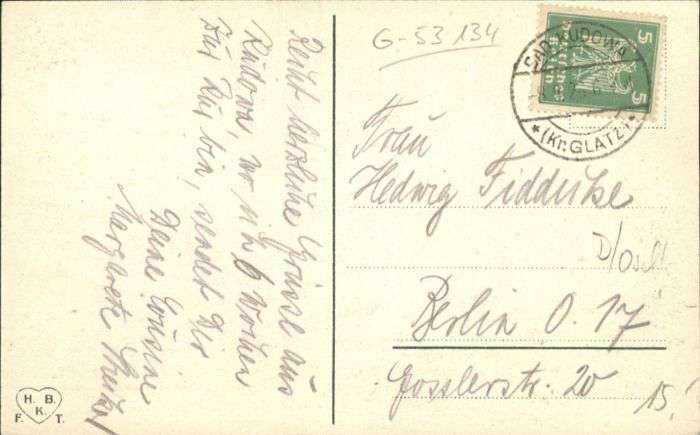 Recht herzliche Grüsse aus
Kudowa, wo ich 6 Wochen
zur Kur bin, sendet Dir
Deine Cousine
Margarete
G-53 134
5
5
BAD KUDOWA
* (Kr. GLATZ) *
Frau
Hedwig Fiddicke
Berlin O. 17
Gosslerstr. 20
15,-
H. B.
K.
F. T.